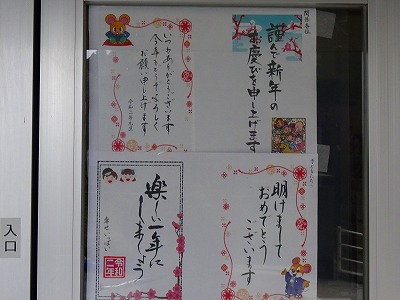 関係各位
謹んで新年の
お慶びを申し上げます
いつもありがとうございます
今年もどうぞよろしく
お願い申し上げます
令和二年元旦
明けまして
おめでとう
ございます
楽しい一年に
しましょう
幸せいっぱい
令和
二年
入口